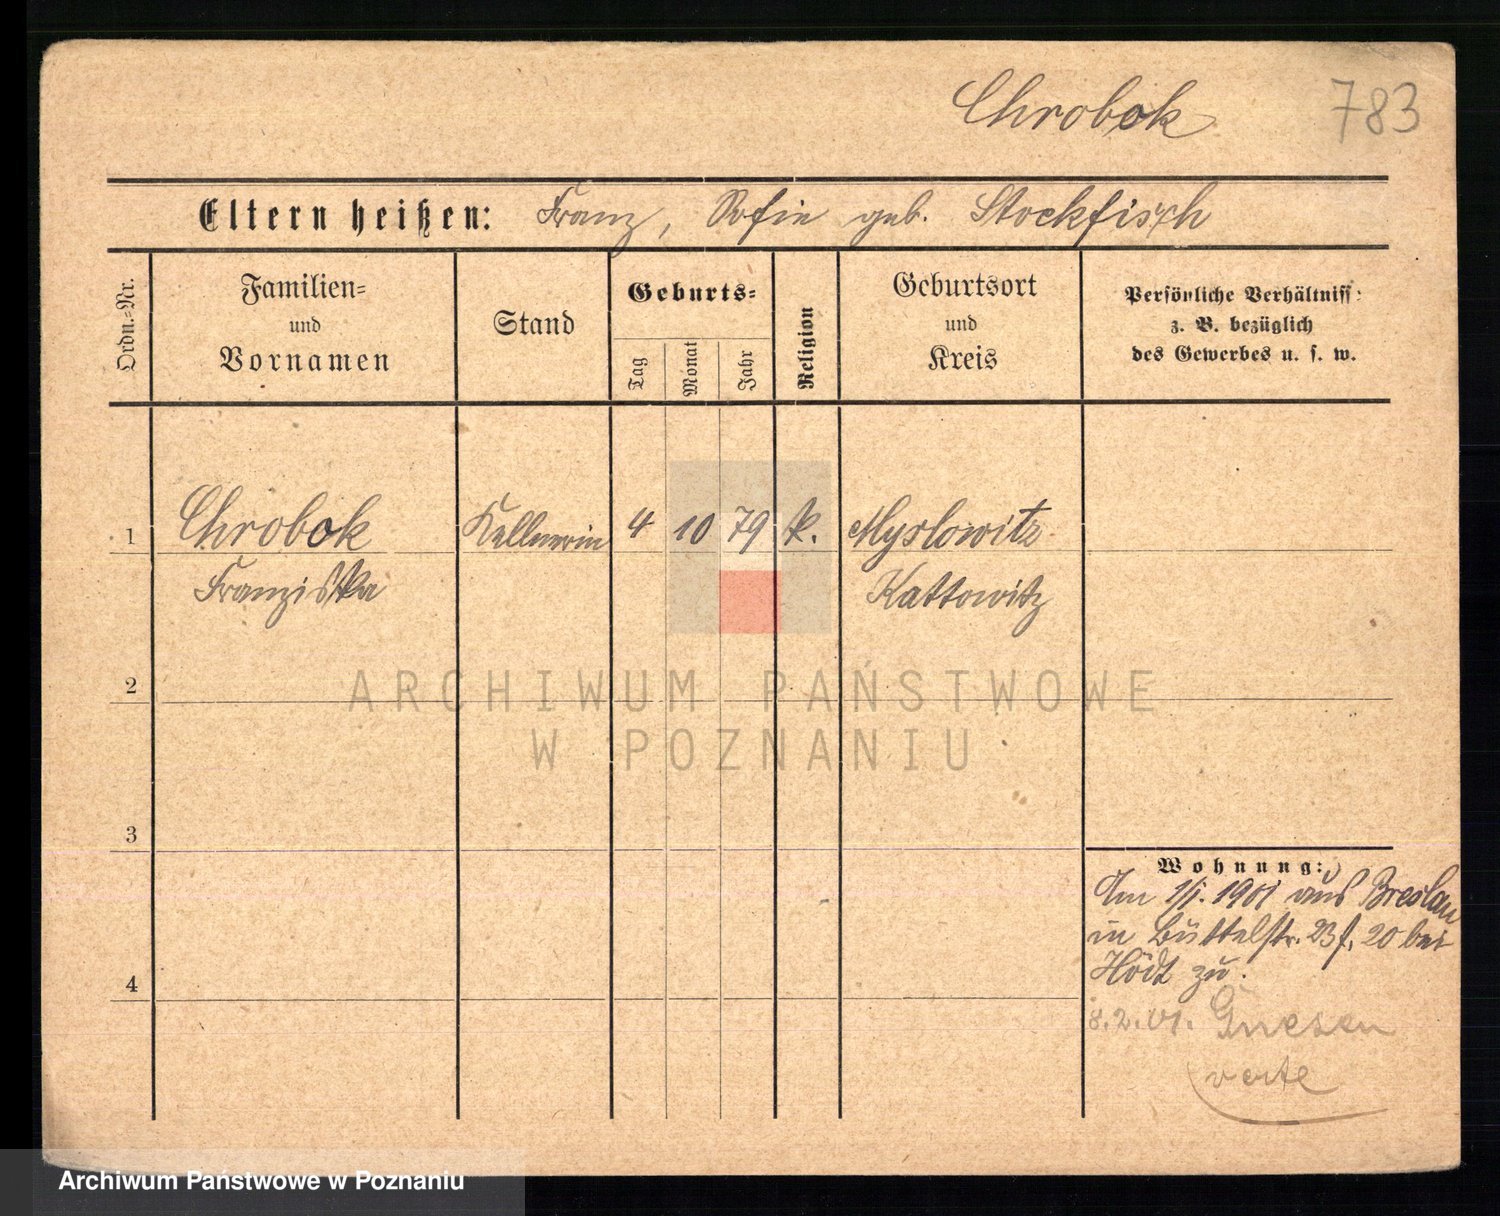 Chrobok 783
Eltern heißen: Franz, Sofie geb. Stockfisch
Ordn.-Nr.
Familien-
und
Vornamen
Stand
Geburts-
Tag
Monat
Jahr
Religion
Geburtsort
und
Kreis
Persönliche Verhältniss:
z. B. bezüglich
des Gewerbes u. s. w.
1 Chrobok Kellnerin 4 10 79 k. Myslowitz
Franziska Kattowitz
2
ARCHIWUM PAŃSTWOWE
W POZNANIU
3
Wohnung:
Am 1/1. 1901 aus Breslau
in Büttelstr. 23 f. 20 bei
Hödt zu.
4
8.2.01. Gnesen
verte
Archiwum Państwowe w Poznaniu